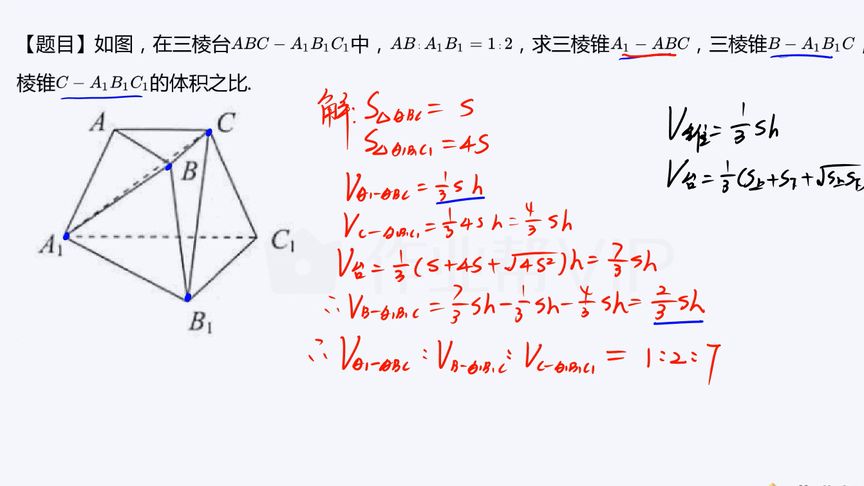 【题目】如图，在三棱台ABC－A₁B₁C₁中，AB:A₁B₁＝1:2，求三棱锥A₁－ABC，三棱锥B－A₁B₁C，
棱锥C－A₁B₁C₁的体积之比.
A
C
B
A₁
C₁
B₁
解: S△ABC = S
S△A₁B₁C₁ = 4S
V A₁-ABC = 1/3 sh
V C-A₁B₁C₁ = 1/3 4sh = 4/3 sh
V台 = 1/3 (S+4S+√4S²)h = 7/3 sh
∴ V B-A₁B₁C = 7/3 sh - 1/3 sh - 4/3 sh = 2/3 sh
∴ V A₁-ABC : V B-A₁B₁C : V C-A₁B₁C₁ = 1:2:7
V锥 = 1/3 sh
V台 = 1/3 (S上+S下+√S上S下
作业帮VIP